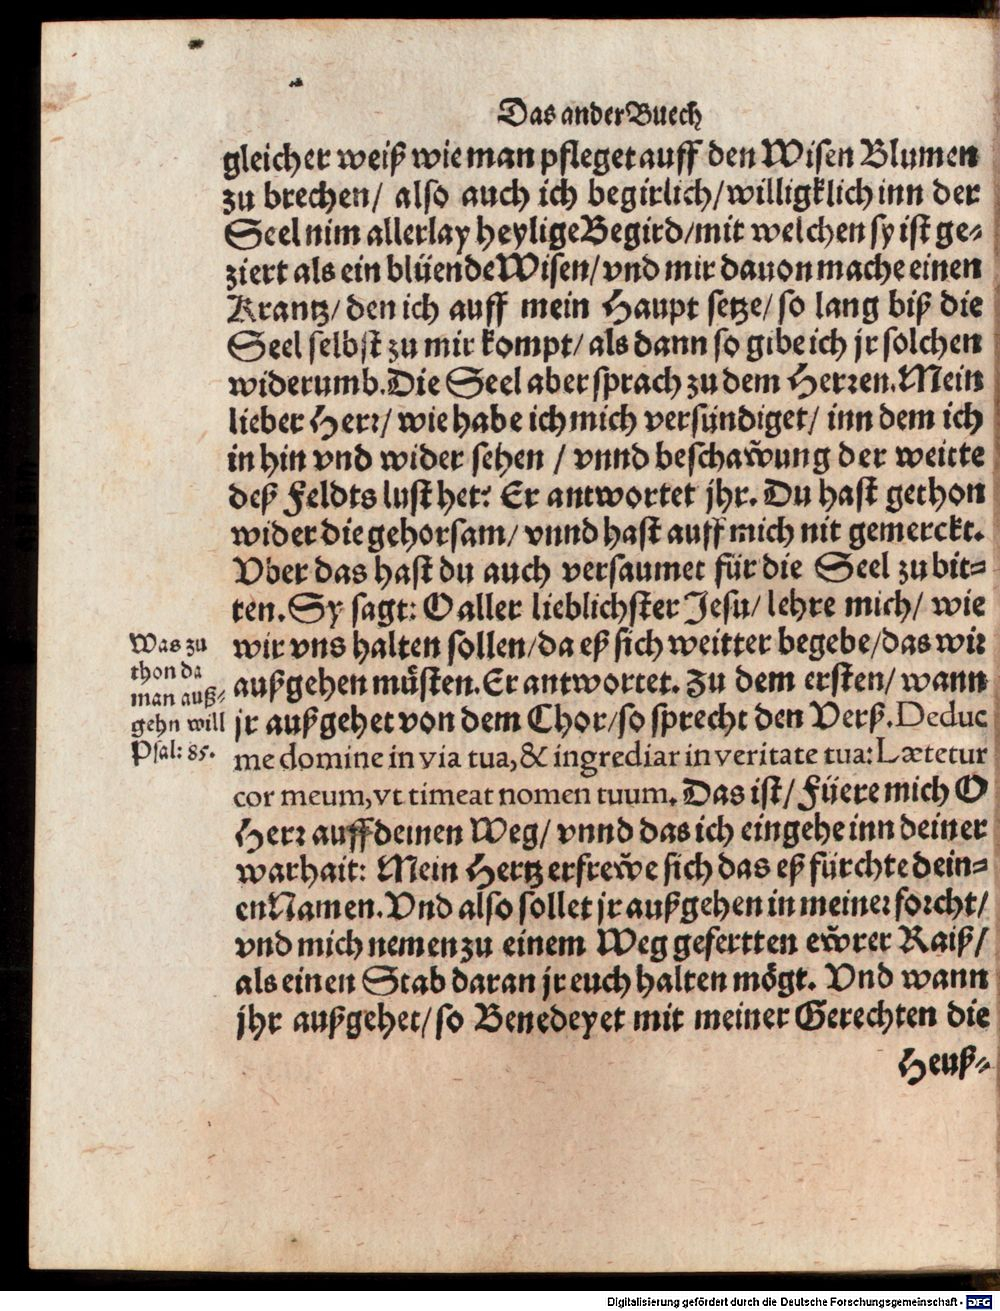 Das ander Buech
gleicher weiß wie man pfleget auff den Wisen Blumen
zu brechen/ also auch ich begirlich/willigklich inn der
Seel nim allerlay heylige Begird/mit welchen sy ist ge-
ziert als ein blüende Wisen/vnd mir dauon mache einen
Krantz/den ich auff mein Haupt setze/so lang biß die
Seel selbst zu mir kompt/als dann so gibe ich jr solchen
widerumb.Die Seel aber sprach zu dem Herren.Mein
lieber Herr/wie habe ich mich versündiget/ inn dem ich
in hin vnd wider sehen / vnnd beschaw̆ung der weitte
deß Feldts lust het? Er antwortet jhr. Du hast gethon
wider die gehorsam/vnnd hast auff mich nit gemerckt.
Vber das hast du auch versaumet für die Seel zu bit-
ten.Sy sagt: O aller lieblichster Jesu/lehre mich/ wie
wir vns halten sollen/da eß sich weitter begebe/das wir
außgehen müsten.Er antwortet. Zu dem ersten/wann
jr außgehet von dem Chor/so sprecht den Verß.Deduc
me domine in via tua,& ingrediar in veritate tua: Lætetur
cor meum,vt timeat nomen tuum. Das ist/Füere mich O
Herr auff deinen Weg/ vnnd das ich eingehe inn deiner
warhait: Mein Hertz erfrew̆e sich das eß fürchte dein-
en Namen.Vnd also sollet jr außgehen in meiner forcht/
vnd mich nemen zu einem Weg gefertten ew̆rer Raiß/
als einen Stab daran jr euch halten mögt. Vnd wann
jhr außgehet/so Benedeyet mit meiner Gerechten die
Heuß-
Was zu
thon da
man auß-
gehn will
Psal: 85.
Digitalisierung gefördert durch die Deutsche Forschungsgemeinschaft - DFG